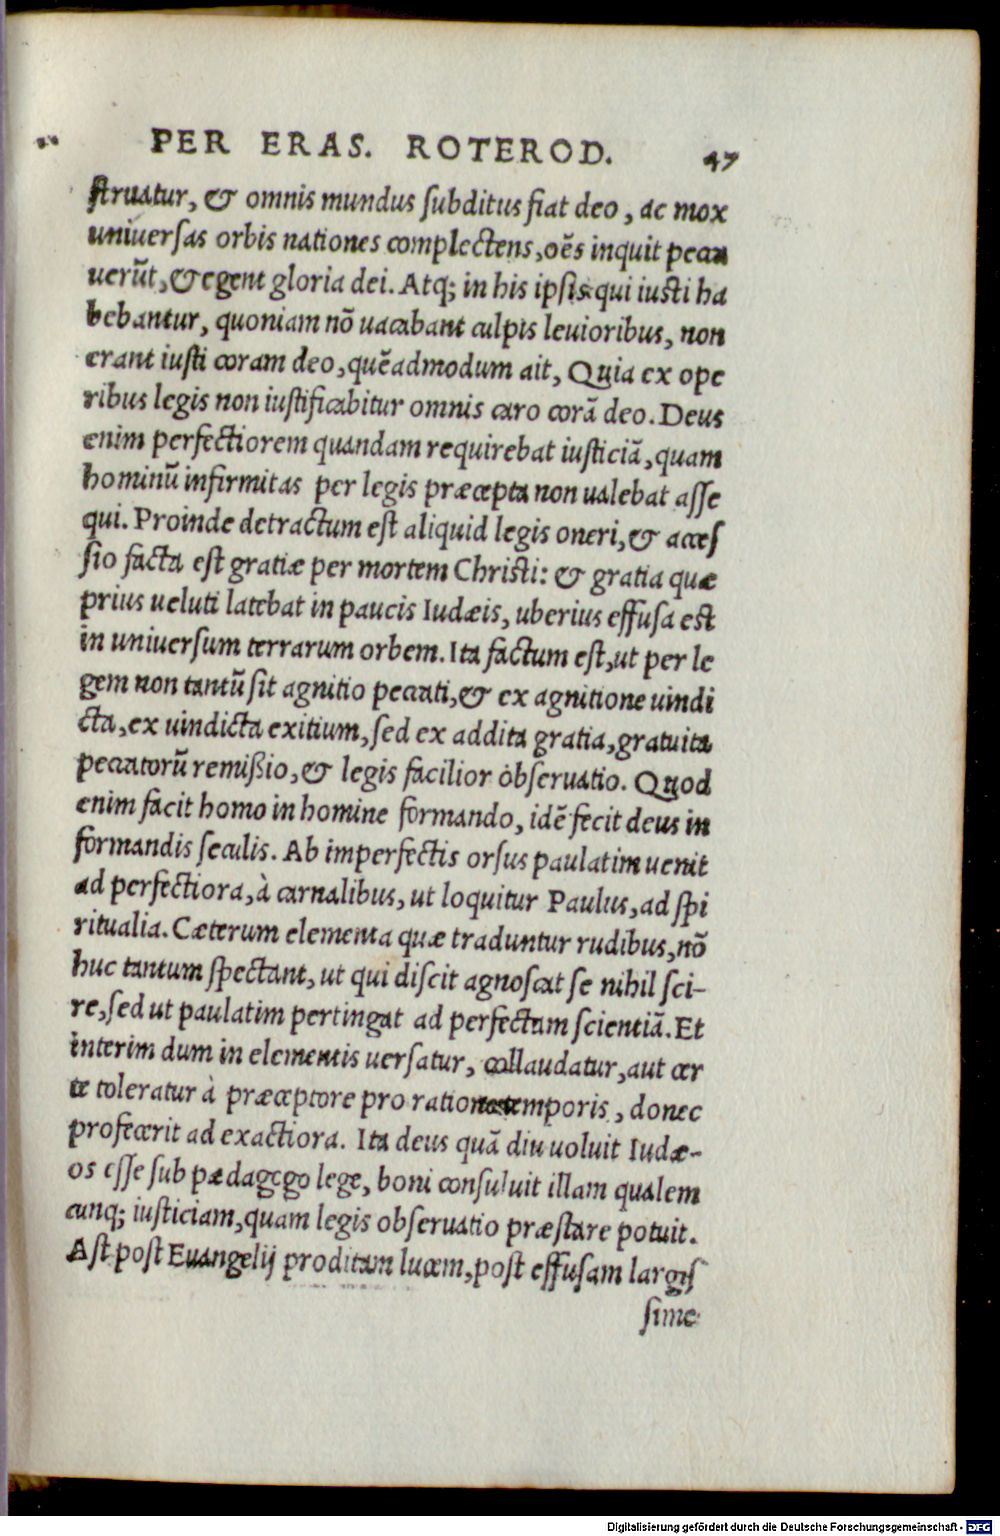 PER ERAS. ROTEROD. 47
ſtruatur, & omnis mundus ſubditus fiat deo, ac mox
uniuerſas orbis nationes complectens, oẽs inquit peccau
uerũt, & egent gloria dei. Atq; in his ipſis qui iuſti ha
bebantur, quoniam nõ uacabant culpis leuioribus, non
erant iuſti coram deo, quẽadmodum ait, Quia ex ope
ribus legis non iuſtificabitur omnis caro corã deo. Deus
enim perfectiorem quandam requirebat iuſticiã, quam
hominũ infirmitas per legis præcepta non ualebat aſſe
qui. Proinde detractum eſt aliquid legis oneri, & acceſ
ſio facta eſt gratiæ per mortem Chriſti: & gratia quæ
prius ueluti latebat in paucis Iudæis, uberius effuſa eſt
in uniuerſum terrarum orbem. Ita factum eſt, ut per le
gem non tantũ ſit agnitio peccati, & ex agnitione uindi
cta, ex uindicta exitium, ſed ex addita gratia, gratuita
peccatorũ remiſßio, & legis facilior obſeruatio. Quod
enim facit homo in homine formando, idẽ fecit deus in
formandis ſeculis. Ab imperfectis orſus paulatim uenit
ad perfectiora, à carnalibus, ut loquitur Paulus, ad ſpi
ritualia. Cæterum elementa quæ traduntur rudibus, nõ
huc tantum ſpectant, ut qui diſcit agnoſcat ſe nihil ſci-
re, ſed ut paulatim pertingat ad perfectam ſcientiã. Et
interim dum in elementis uerſatur, collaudatur, aut cer
te toleratur à præceptore pro ratione temporis, donec
profecerit ad exactiora. Ita deus quã diu uoluit Iudæ-
os eſſe ſub pædagogo lege, boni conſuluit illam qualem
cunq; iuſticiam, quam legis obſeruatio præſtare potuit.
Aſt poſt Euangelij proditam lucem, poſt effuſam largiſ
ſime
Digitalisierung gefördert durch die Deutsche Forschungsgemeinschaft - DFG